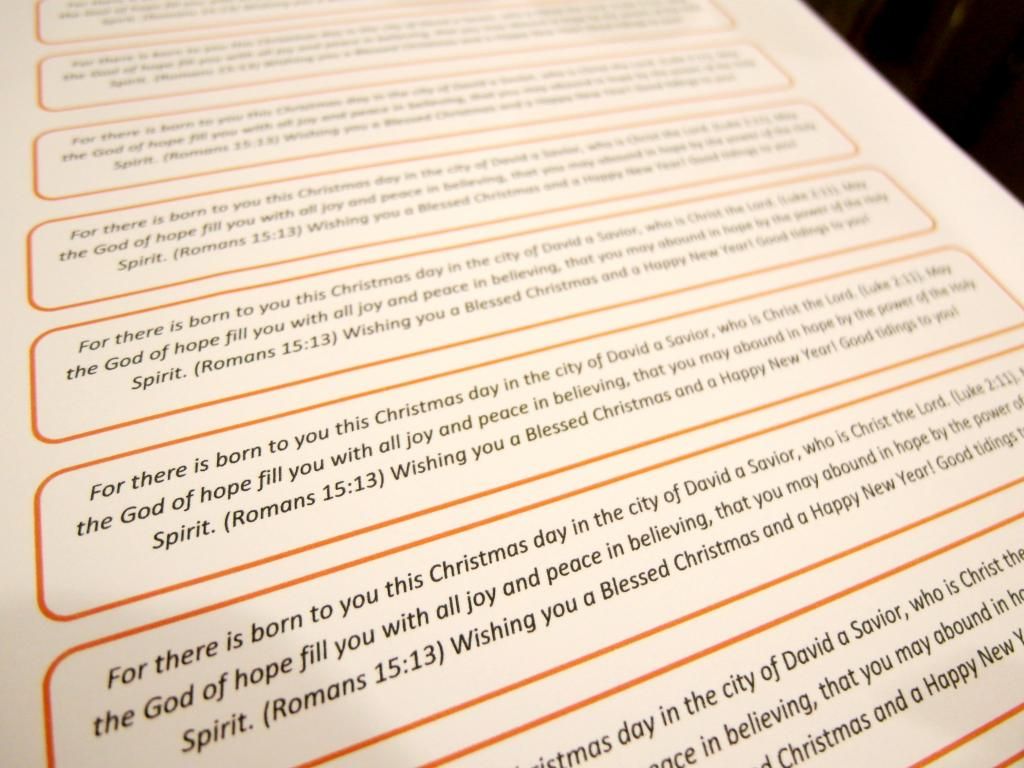 For there is born to you this Christmas day in the city of David a Savior, who is Christ the Lord. (Luke 2:11). May
the God of hope fill you with all joy and peace in believing, that you may abound in hope by the power of the Holy
Spirit. (Romans 15:13) Wishing you a Blessed Christmas and a Happy New Year! Good tidings to you!
For there is born to you this Christmas day in the city of David a Savior, who is Christ the Lord. (Luke 2:11). May
the God of hope fill you with all joy and peace in believing, that you may abound in hope by the power of the Holy
Spirit. (Romans 15:13) Wishing you a Blessed Christmas and a Happy New Year! Good tidings to you!
For there is born to you this Christmas day in the city of David a Savior, who is Christ the Lord. (Luke 2:11). May
the God of hope fill you with all joy and peace in believing, that you may abound in hope by the power of the Holy
Spirit. (Romans 15:13) Wishing you a Blessed Christmas and a Happy New Year! Good tidings to you!
For there is born to you this Christmas day in the city of David a Savior, who is Christ the Lord. (Luke 2:11). May
the God of hope fill you with all joy and peace in believing, that you may abound in hope by the power of the Holy
Spirit. (Romans 15:13) Wishing you a Blessed Christmas and a Happy New Year! Good tidings to you!
For there is born to you this Christmas day in the city of David a Savior, who is Christ the Lord. (Luke 2:11). May
the God of hope fill you with all joy and peace in believing, that you may abound in hope by the power of the Holy
Spirit. (Romans 15:13) Wishing you a Blessed Christmas and a Happy New Year! Good tidings to you!
For there is born to you this Christmas day in the city of David a Savior, who is Christ the Lord. (Luke 2:11).
the God of hope fill you with all joy and peace in believing, that you may abound in hope by the power of
Spirit. (Romans 15:13) Wishing you a Blessed Christmas and a Happy New Year! Good tidings
day in the city of David a Savior, who is Christ the
in believing, that you may abound in
Christmas and a Happy New